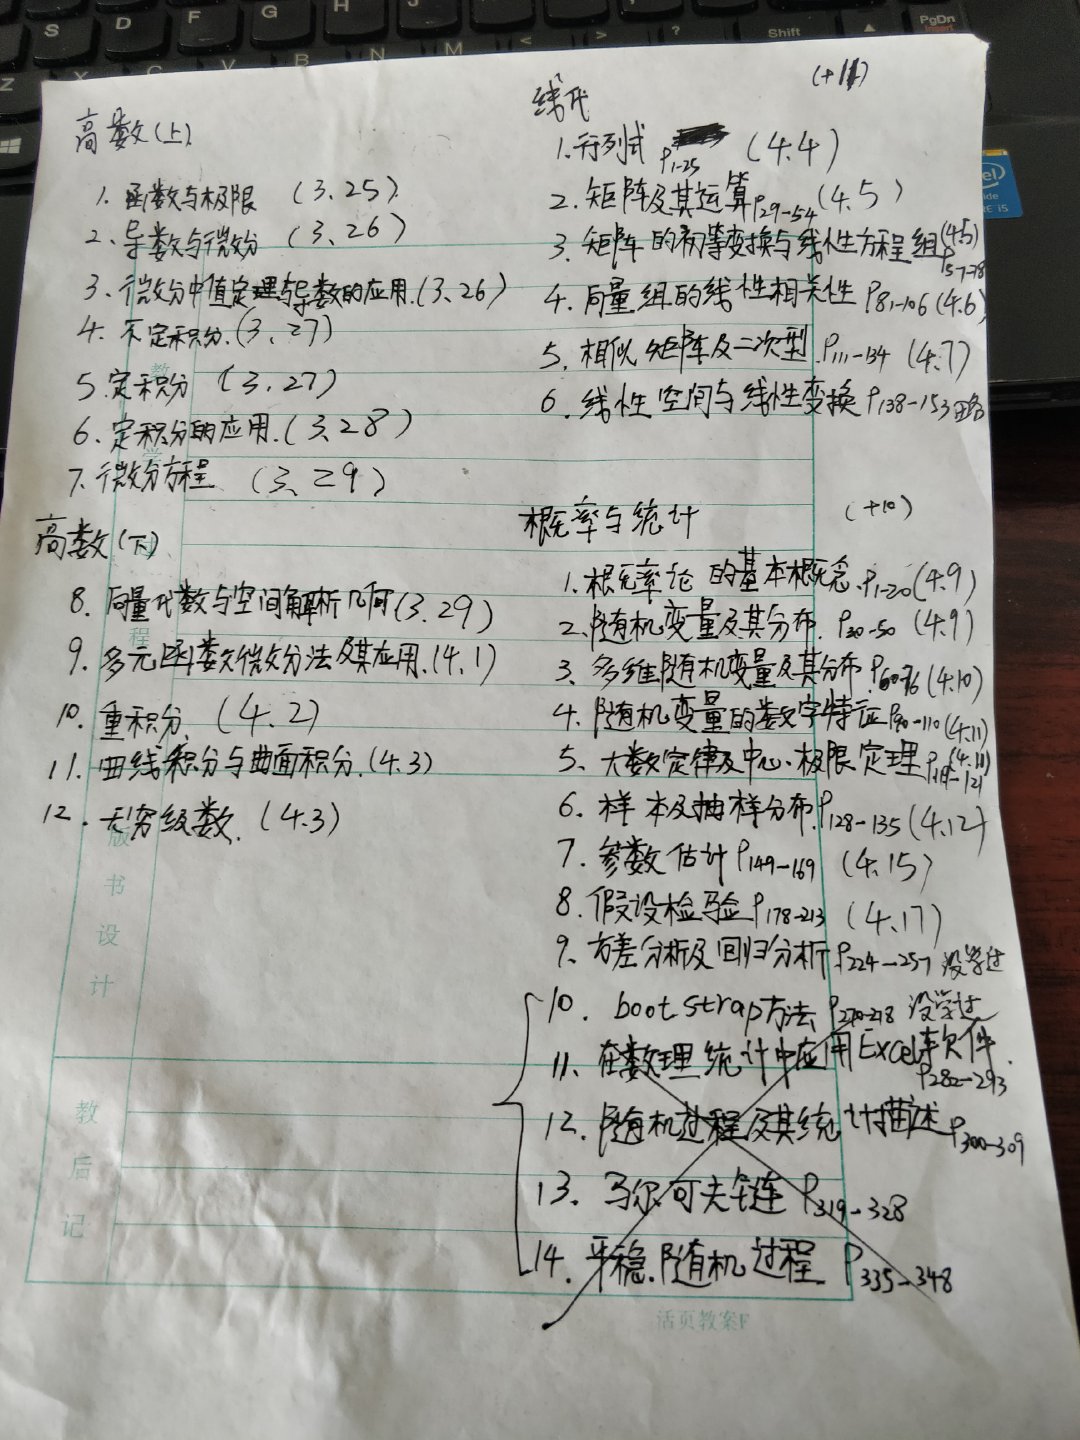 高数(上)
1. 函数与极限 (3.25)
2. 导数与微分 (3.26)
3. 微分中值定理与导数的应用.(3.26)
4. 不定积分.(3.27)
5. 定积分 (3.27)
6. 定积分的应用.(3.28)
7. 微分方程 (3.29)
高数(下)
8. 向量代数与空间解析几何(3.29)
9. 多元函数微分法及其应用.(4.1)
10. 重积分. (4.2)
11. 曲线积分与曲面积分.(4.3)
12. 无穷级数. (4.3)
线代
1. 行列式 P1-25 (4.4)
2. 矩阵及其运算 P29-54 (4.5)
3. 矩阵的初等变换与线性方程组 (4.5) P57-78
4. 向量组的线性相关性 P81-106 (4.6)
5. 相似矩阵及二次型 P111-134 (4.7)
6. 线性空间与线性变换 P138-153 略
概率与统计 (+10)
1. 概率论的基本概念. P1-20 (4.9)
2. 随机变量及其分布. P30-50 (4.9)
3. 多维随机变量及其分布 P60-76 (4.10)
4. 随机变量的数字特征 P90-110 (4.11)
5. 大数定律及中心极限定理 (4.11)
6. 样本及抽样分布 P128-135 (4.12)
7. 参数估计 P149-169 (4.15)
8. 假设检验 P178-213 (4.17)
9. 方差分析及回归分析 P224-257 没学过
10. bootstrap方法 没学过
11. 在数理统计中应用Excel软件. P282-293
12. 随机过程及其统计描述 P300-309
13. 马尔可夫链 P319-328
14. 平稳随机过程 P335-348
教
学
程
版
书
设
计
教
后
记
活页教案F
S
D
F
G
H
J
K
L
Z
X
C
V
B
N
M
Shift
PgDn
Insert